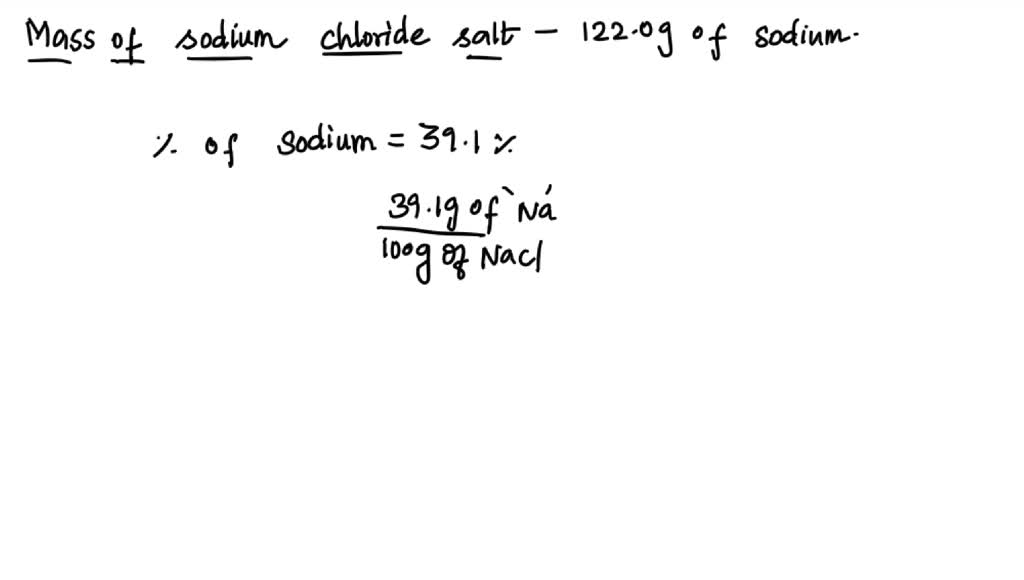 Mass of sodium chloride salt - 122.0g of sodium.
% of sodium = 39.1 %
39.1g of Na
100g of Nacl